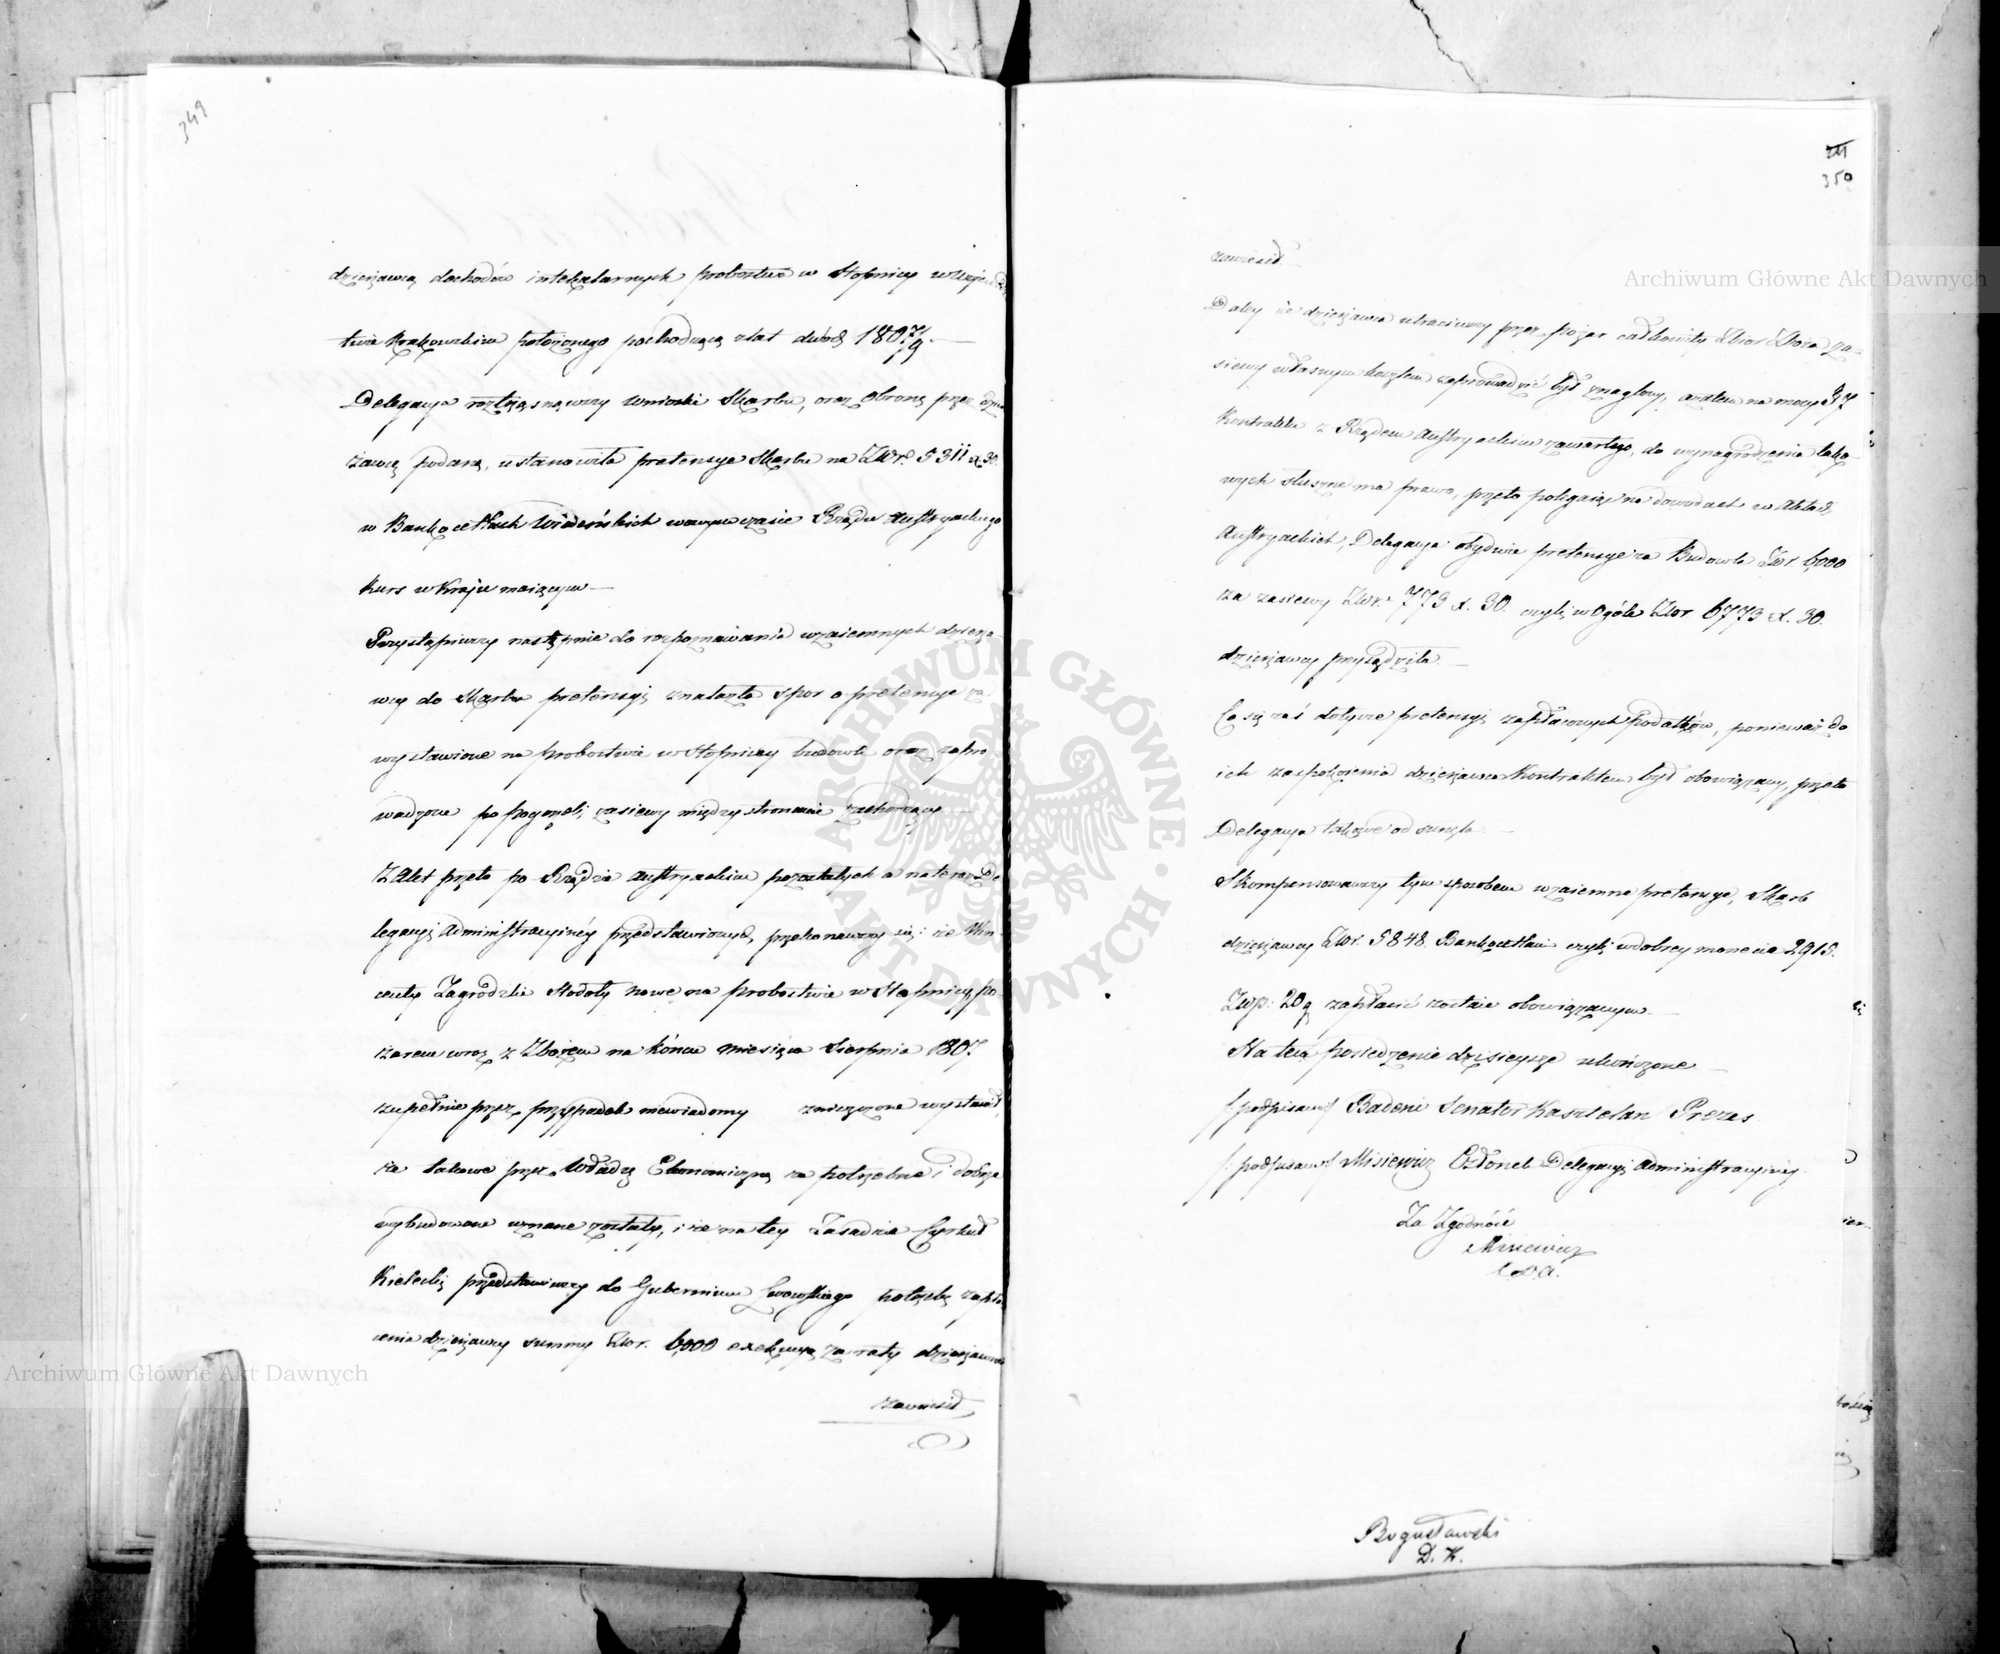 349
dzierżawcą dochodów interkalarnych probostwa w Stopnicy w
twie Krakowskim położonego pochodzącą z lat dwóch 1807/9.
Delegacya roztrząsnąwszy wnioski Skarbu, oraz obronę przez dzier
żawcę podaną, ustanowiła pretensye Skarbu na Złr. 5311 x 30.
w Bankocetlach Wiedeńskich wówczas czasie Rządu Austryackiego
kurs w Kraju maiącym —
Przystąpiwszy następnie do rozpoznawania wzaiemnych dzierża-
wcy do Skarbu pretensyi znalazła spór o pretensye za
wystawione na probostwie w Stopnicy budowle oraz zapro
wadzone po pogorzeli zasiewy między stronami zachodzący —
Z Akt przeto po Rządzie Austryackim pozostałych a na teraz De
legacyi Administracyiney przedstawionych, przekonawszy się: iż Win-
centy Zagrodzki Stodoły nowe na probostwie w Stopnicy po-
żarem wraz z Zbożem na końcu miesiąca Sierpnia 1807.
zupełnie przez przypadek niewiadomy zniszczone wystawił,
że takowe przez Władzę Ekonomiczną za potrzebne i dobrze
wybudowane uznane zostały, i że na tey Zasadzie Cyrkuł
Kielecki przedstawiwszy do Gubernium Lwowskiego potrzebę zapła
cenia dzierżawcy summy Złr. 6,000 exekucyą za raty dzierżawne
zawiesił
350
zawiesił
Daley że dzierżawca utraciwszy przez pożar całkowity Zbiór Zboża za-
siewy własnym kosztem zaprowadzić był znaglony, a zatem na mocy § 7
Kontraktu z Rządem Austryackim zawartego, do wynagrodzenia tako-
wych słuszne ma prawo, przeto polegaiąc na dowodach w Aktach
Austryackich, Delegacya obydwie pretensye za Budowle Złr. 6,000
za zasiewy Złr. 773 x. 30. czyli w Ogóle Złor. 6773 x. 30.
dzierżawcy przysądziła. —
Co się zaś dotycze pretensyi zapłaconych Podatków, ponieważ do
ich zaspokoienia dzierżawca Kontraktem był obowiązany, przeto
Delegacya takowe odsunęła. —
Skompensowawszy tym sposobem wzaiemne pretensye, Skarb
dzierżawcy Złr. 5848. Bankocetlami czyli w dobrey monecie 2915.
Złp. 20 g zapłacić zostaie obowiązanym. —
Na tem posiedzenie dzisieysze ukończone —
/:podpisano:/ Badeni Senator Kasztelan Prezes
/:podpisano:/ Misiewicz Członek Delegacyi Administracyiney.
Za Zgodność
Misiewicz
C.D.A.
Bogusławski
D. K.
Archiwum Główne Akt Dawnych
Archiwum Główne Akt Dawnych
ARCHIWUM GŁÓWNE AKT DAWNYCH